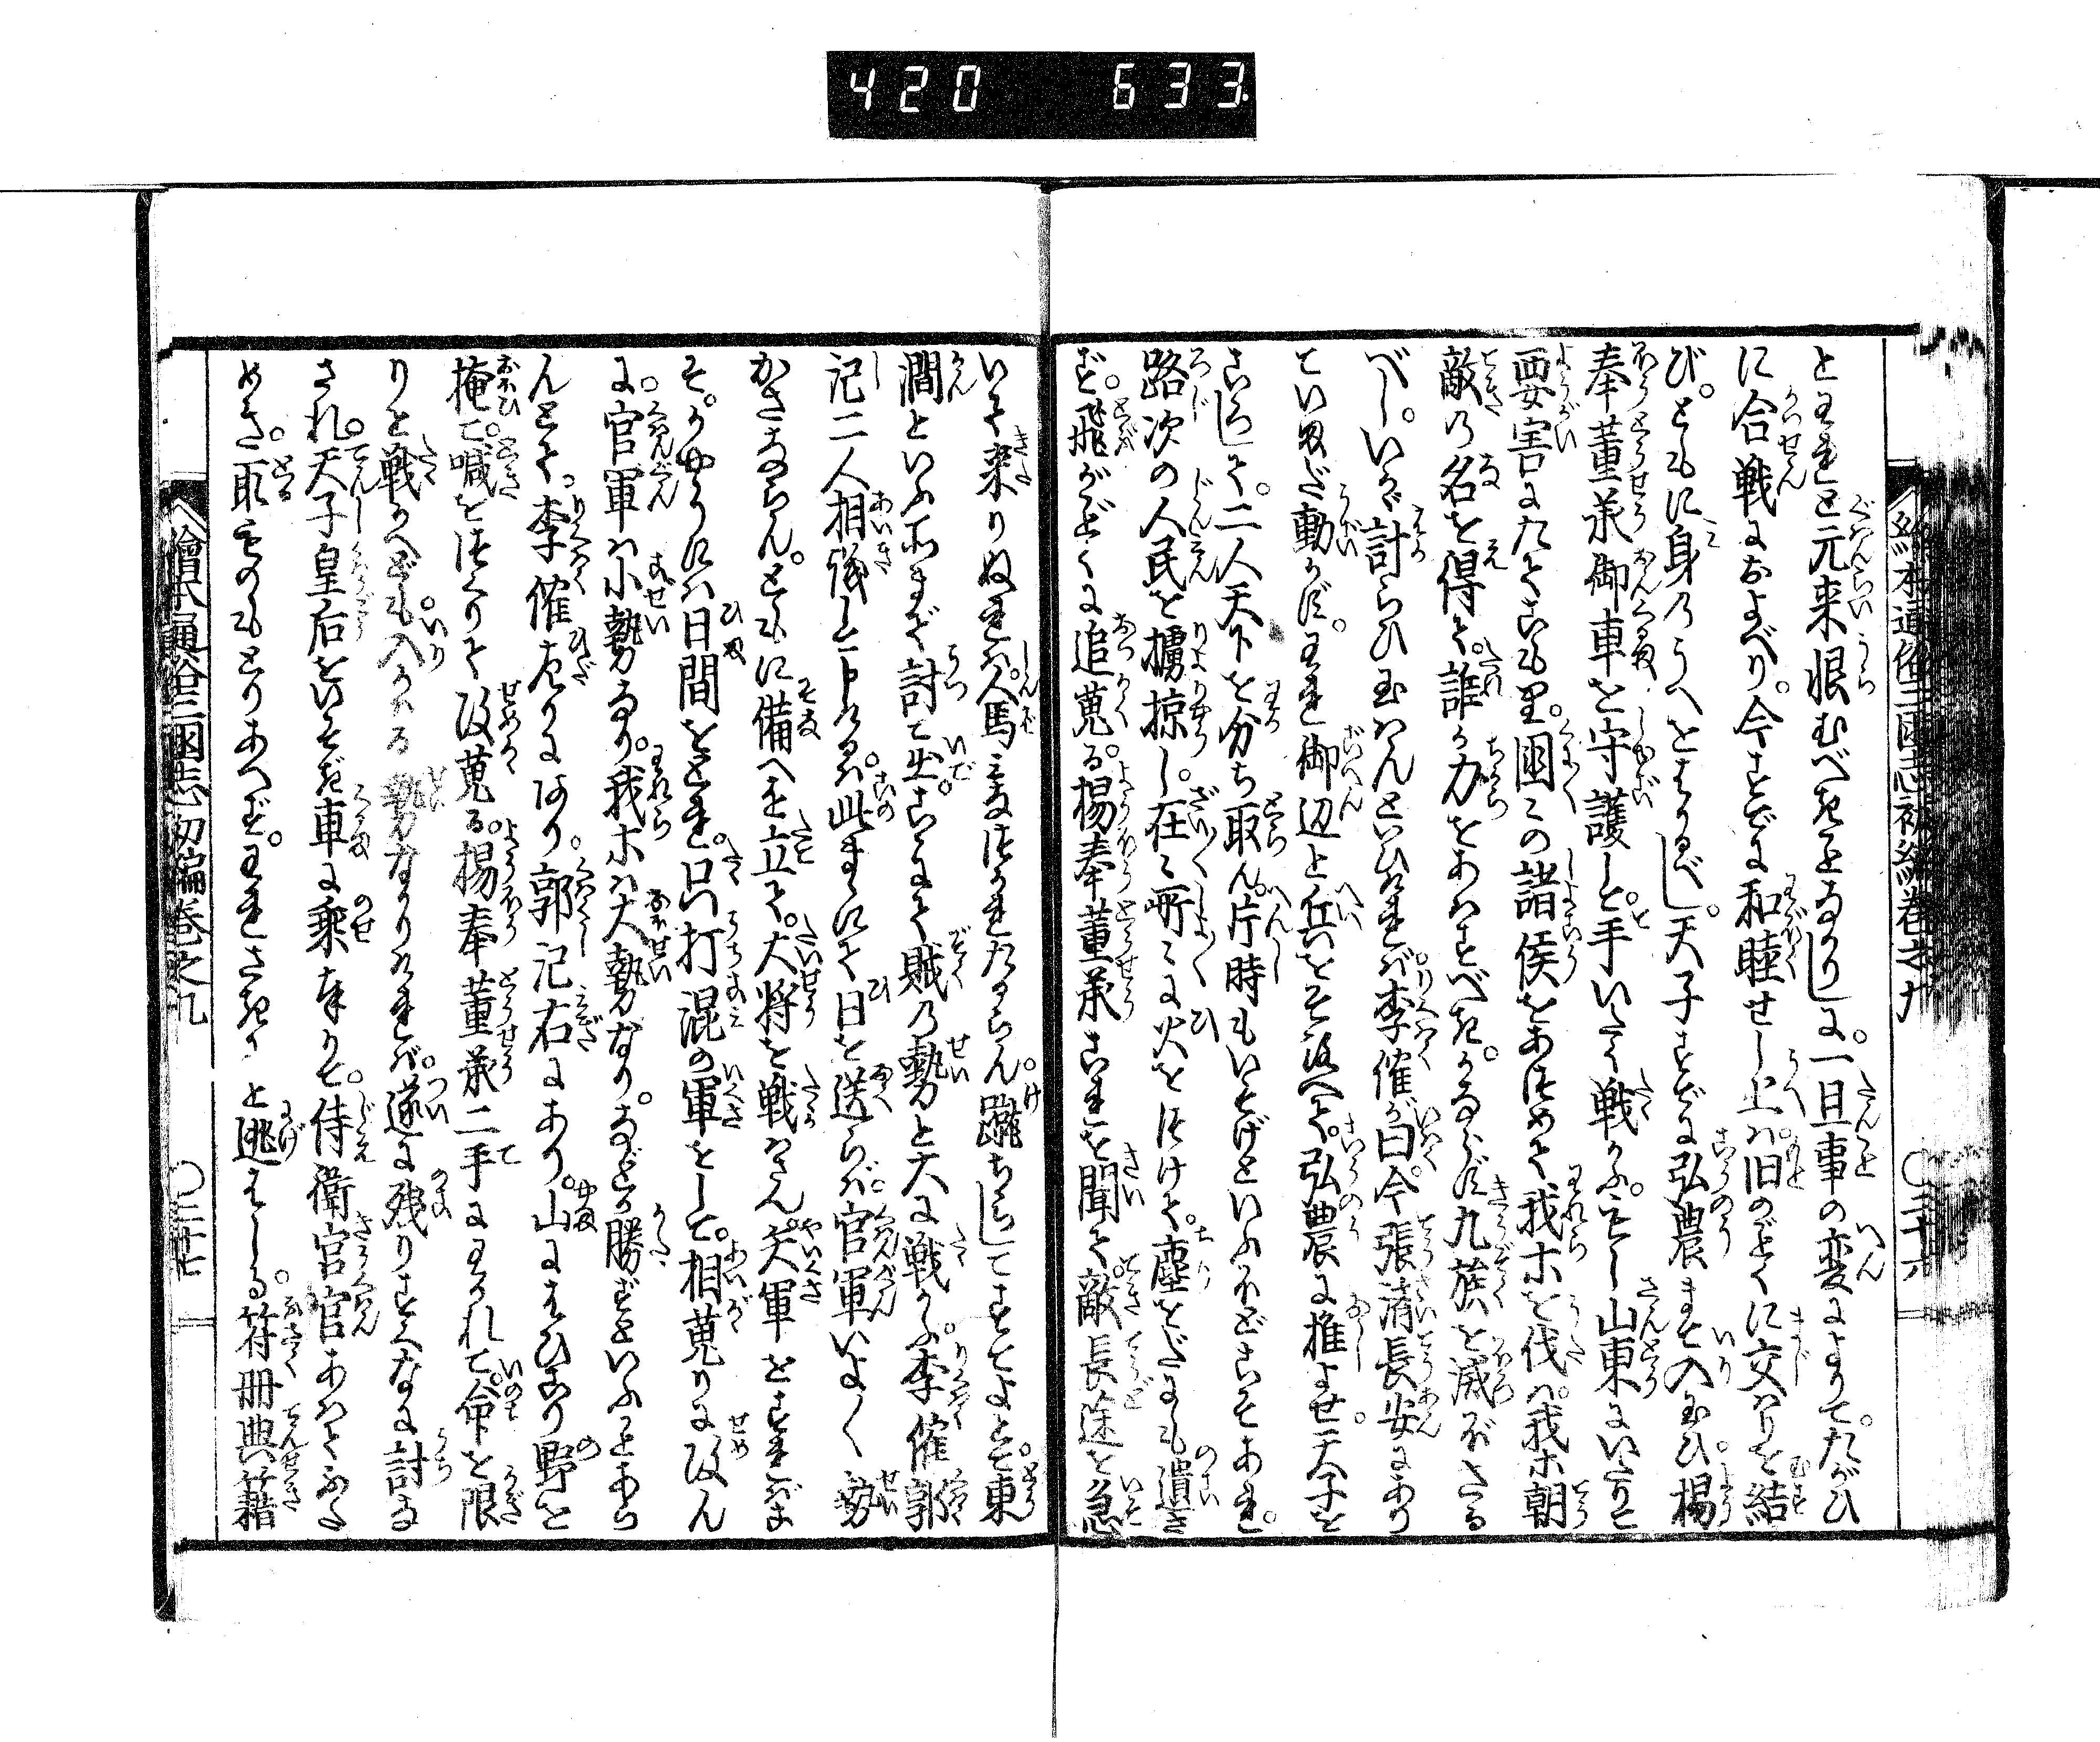 420 633
繪本通俗三國志初編巻之九 ○三十六
とわれと元来恨むべきことなかりしに。一旦事の変によりて。たがひ
に合戦におよべり。今すでに和睦せし上は旧のごとくに交はりを結
び。ともに身のうへをはかるべし。天子すでに弘農まで入玉ひ。楊
奉董承御車を守護して。手いたく戦かふ。もし山東にいたりて
要害にたてこもり。国々の諸侯をあつめて我ホを伐ハ。我ホ朝
敵の名を得て。誰か力をあはすべき。かならず九族を滅ぼさる
べし。いかゞ計らひ玉はんといひければ。李傕が曰今張済長安にあり
ていまだ動かず。われ御辺と兵をそろへて。弘農に推よせ。天子を
ころして。二人天下を分ち取ん。片時もいそげといふほどこそあれ。
路次の人民を擄掠し。在々所々に火をつけて。塵をだにも遺さ
ず。飛がごとくに追蒐る。楊奉董承これを聞て。敵長途を急
いで来りぬれば。人馬みなつかれたらん。蹴ちらしてすてよとて。東
澗といふ所まで討て出。こゝにて賊の勢と大に戦かふ。李傕郭
汜二人相議して申けるは。此まゝにて日を送らば。官軍いよ〱勢
かさならん。ともに備へを立て。大将を戦はさん。矢軍をすればま
そ。かやうには日間をとれ。只打混の軍をして。相蒐りに攻ん
に。官軍ハ小勢なり。我ホハ大勢なり。などか勝ずといふことあら
んとて。李傕左りにあり。郭汜右にあり。山にはひかり野を
掩て。喊をつくりて攻蒐る。楊奉董承二手にわかれて。命を限
りと戦かへども。入かはる勢なかりければ。遂に残りすくなに討な
され。天子皇后をいそぎ車に乗奉りて。侍衛官官あはてふた
めき。取ものもとりあへず。われさきと逃はしる。符冊典籍
繪本通俗三國志初編巻之九 ○三十七